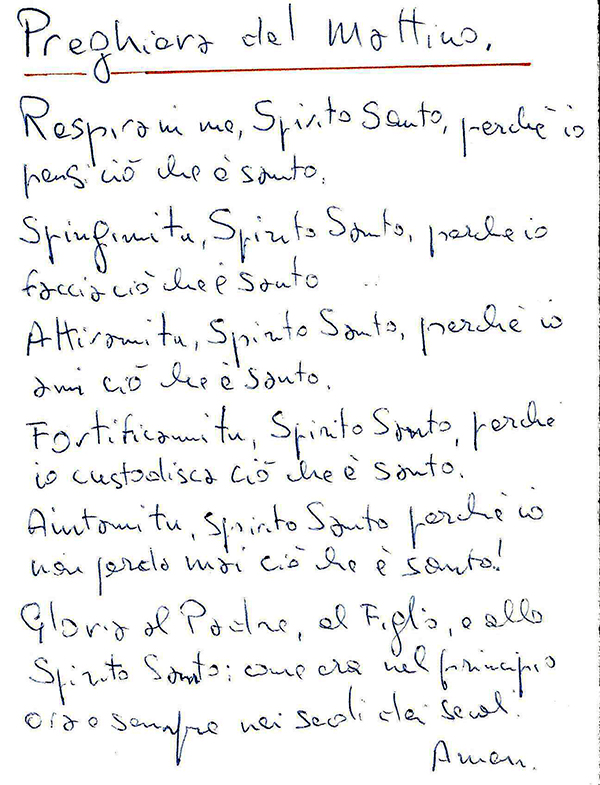 Preghiera del Mattino.
Respira in me, Spirito Santo, perchè io
pensi ciò che è santo.
Spingimi tu, Spirito Santo, perche io
faccia ciò che è santo
Attirami tu, Spirito Santo, perchè io
ami ciò che è santo.
Fortificami tu, Spirito Santo, perchè
io custodisca ciò che è santo.
Aiutami tu, Spirito Santo perchè io
non perda mai ciò che è santo!
Gloria al Padre, al Figlio, e allo
Spirito Santo: come era nel principio
ora e sempre nei secoli dei secoli.
Amen.